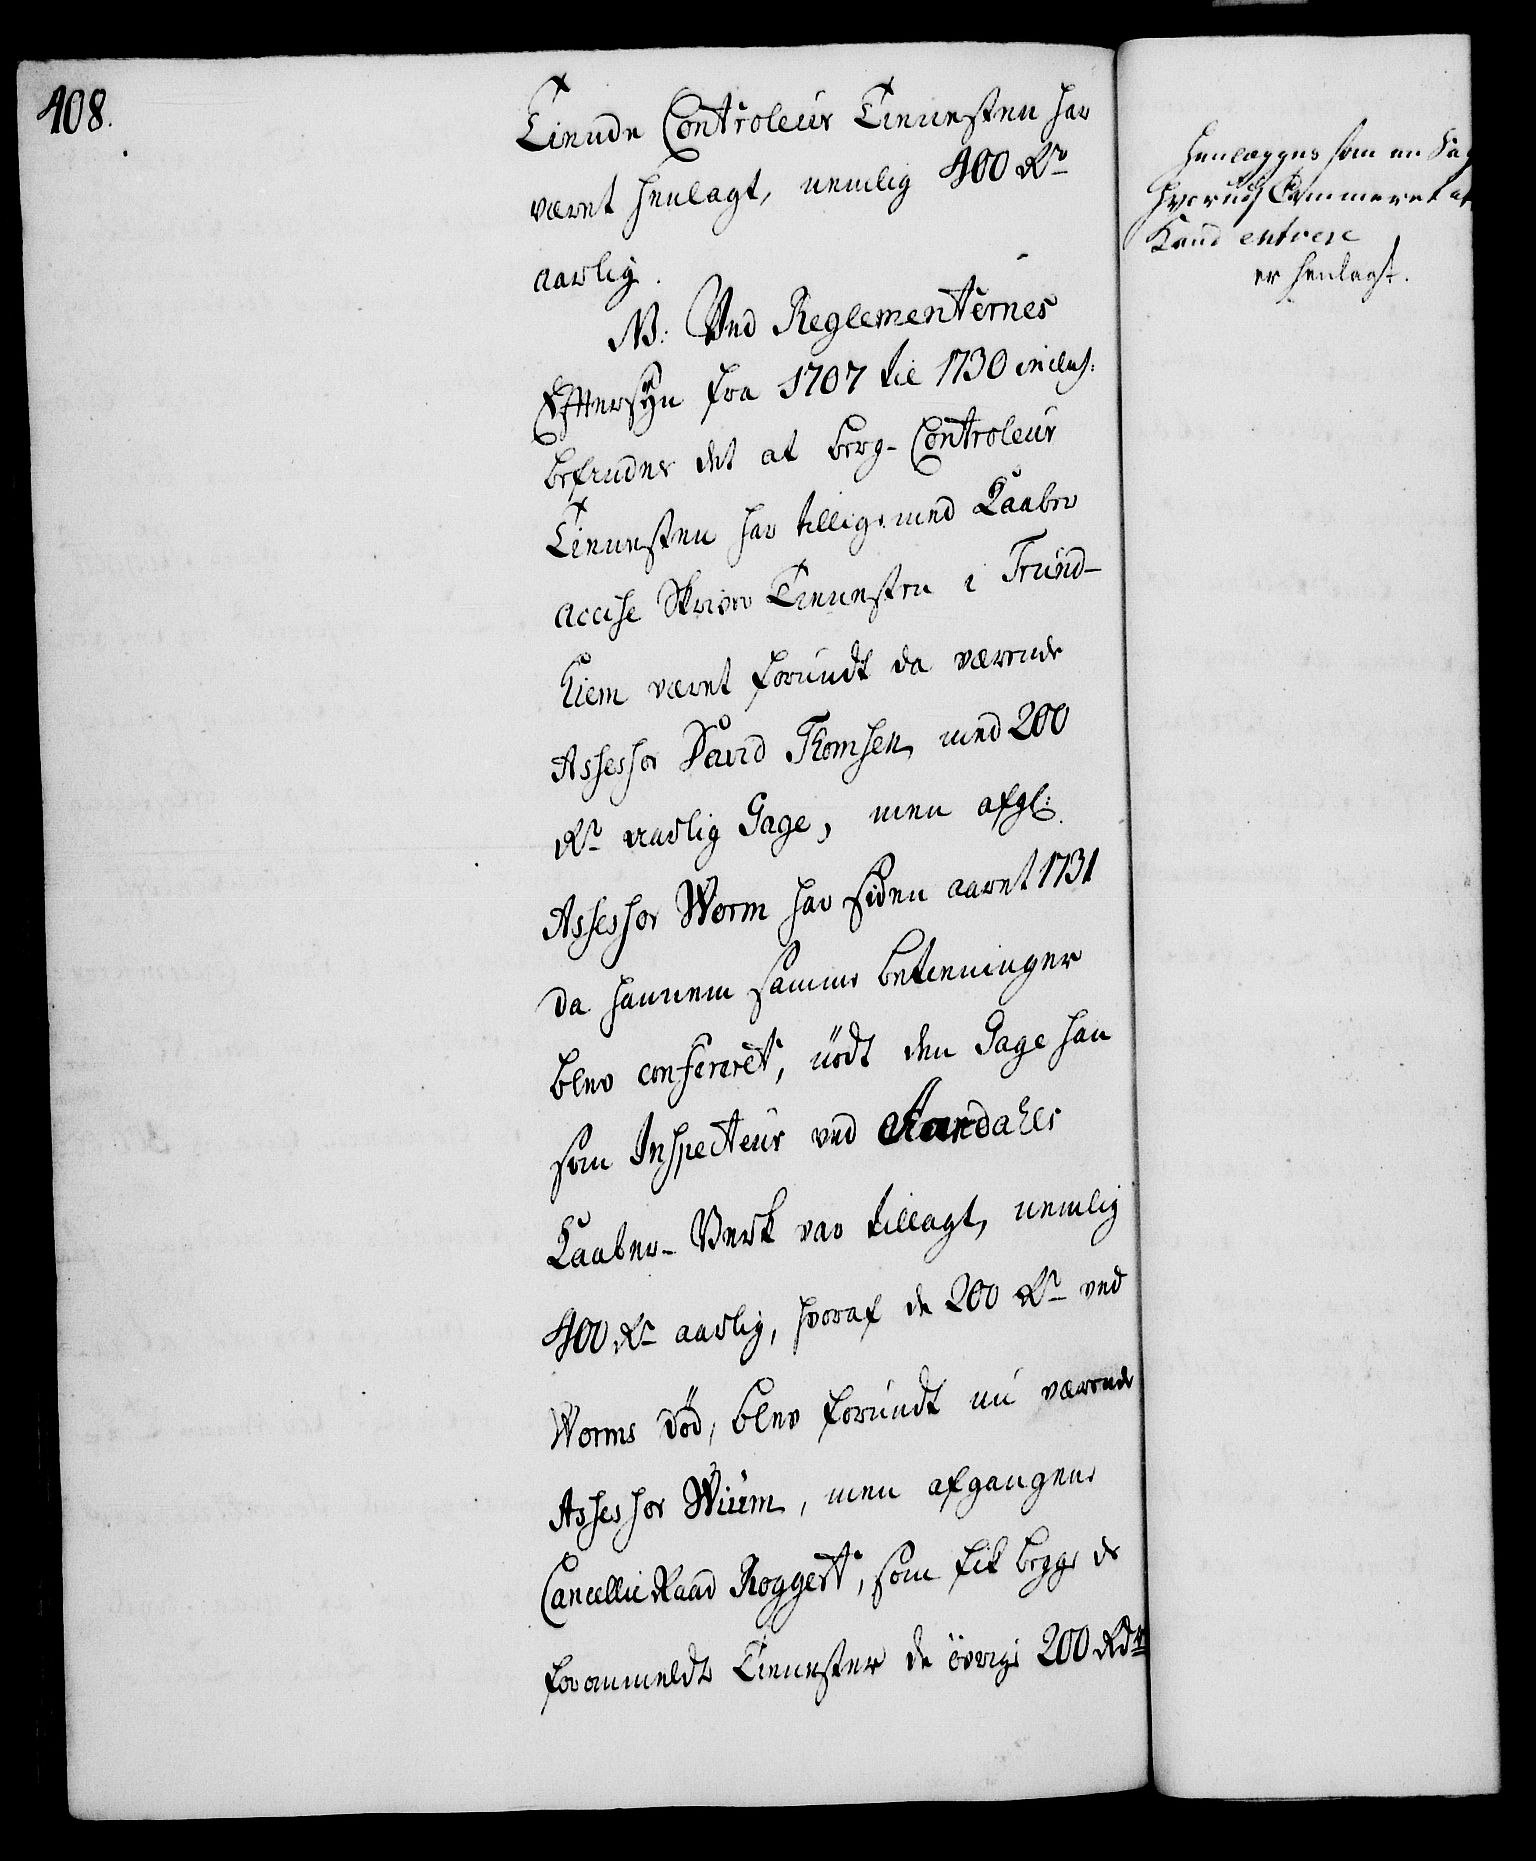 408.
Tiende Controleur Tienesten har
været henlagt, nemlig 400 Rdr
aarlig.
NB: Ved Reglementernes
Eftersyn fra 1707 til 1730 inclus:
befindes det at berg-Controleur
Tienesten har tilligemed Kaaber
accise Skriver Tienesten i Trund-
hiem været forundt da værende
Assessor David Thomsen med 200
Rdr aarlig Gage, men afg:
Assessor Worm har siden aaret 1731
da hannem samme betieninger
blev confereret, nödt den Gage han
som Inspecteur ved Aardahls
Kaaber-Verk var tillagt, nemlig
400 Rdr aarlig, hvoraf de 200 Rdr ved
Worms död, blev forundt nu værende
Assessor Wium, men afgangene
Cancellie Raad Roggert, som fik begge de
forommeldte Tienester de övrige 200 Rdr
Henlægges som en Sag
hvorudj Cammeret ey
Kand entrere
er henlagt.